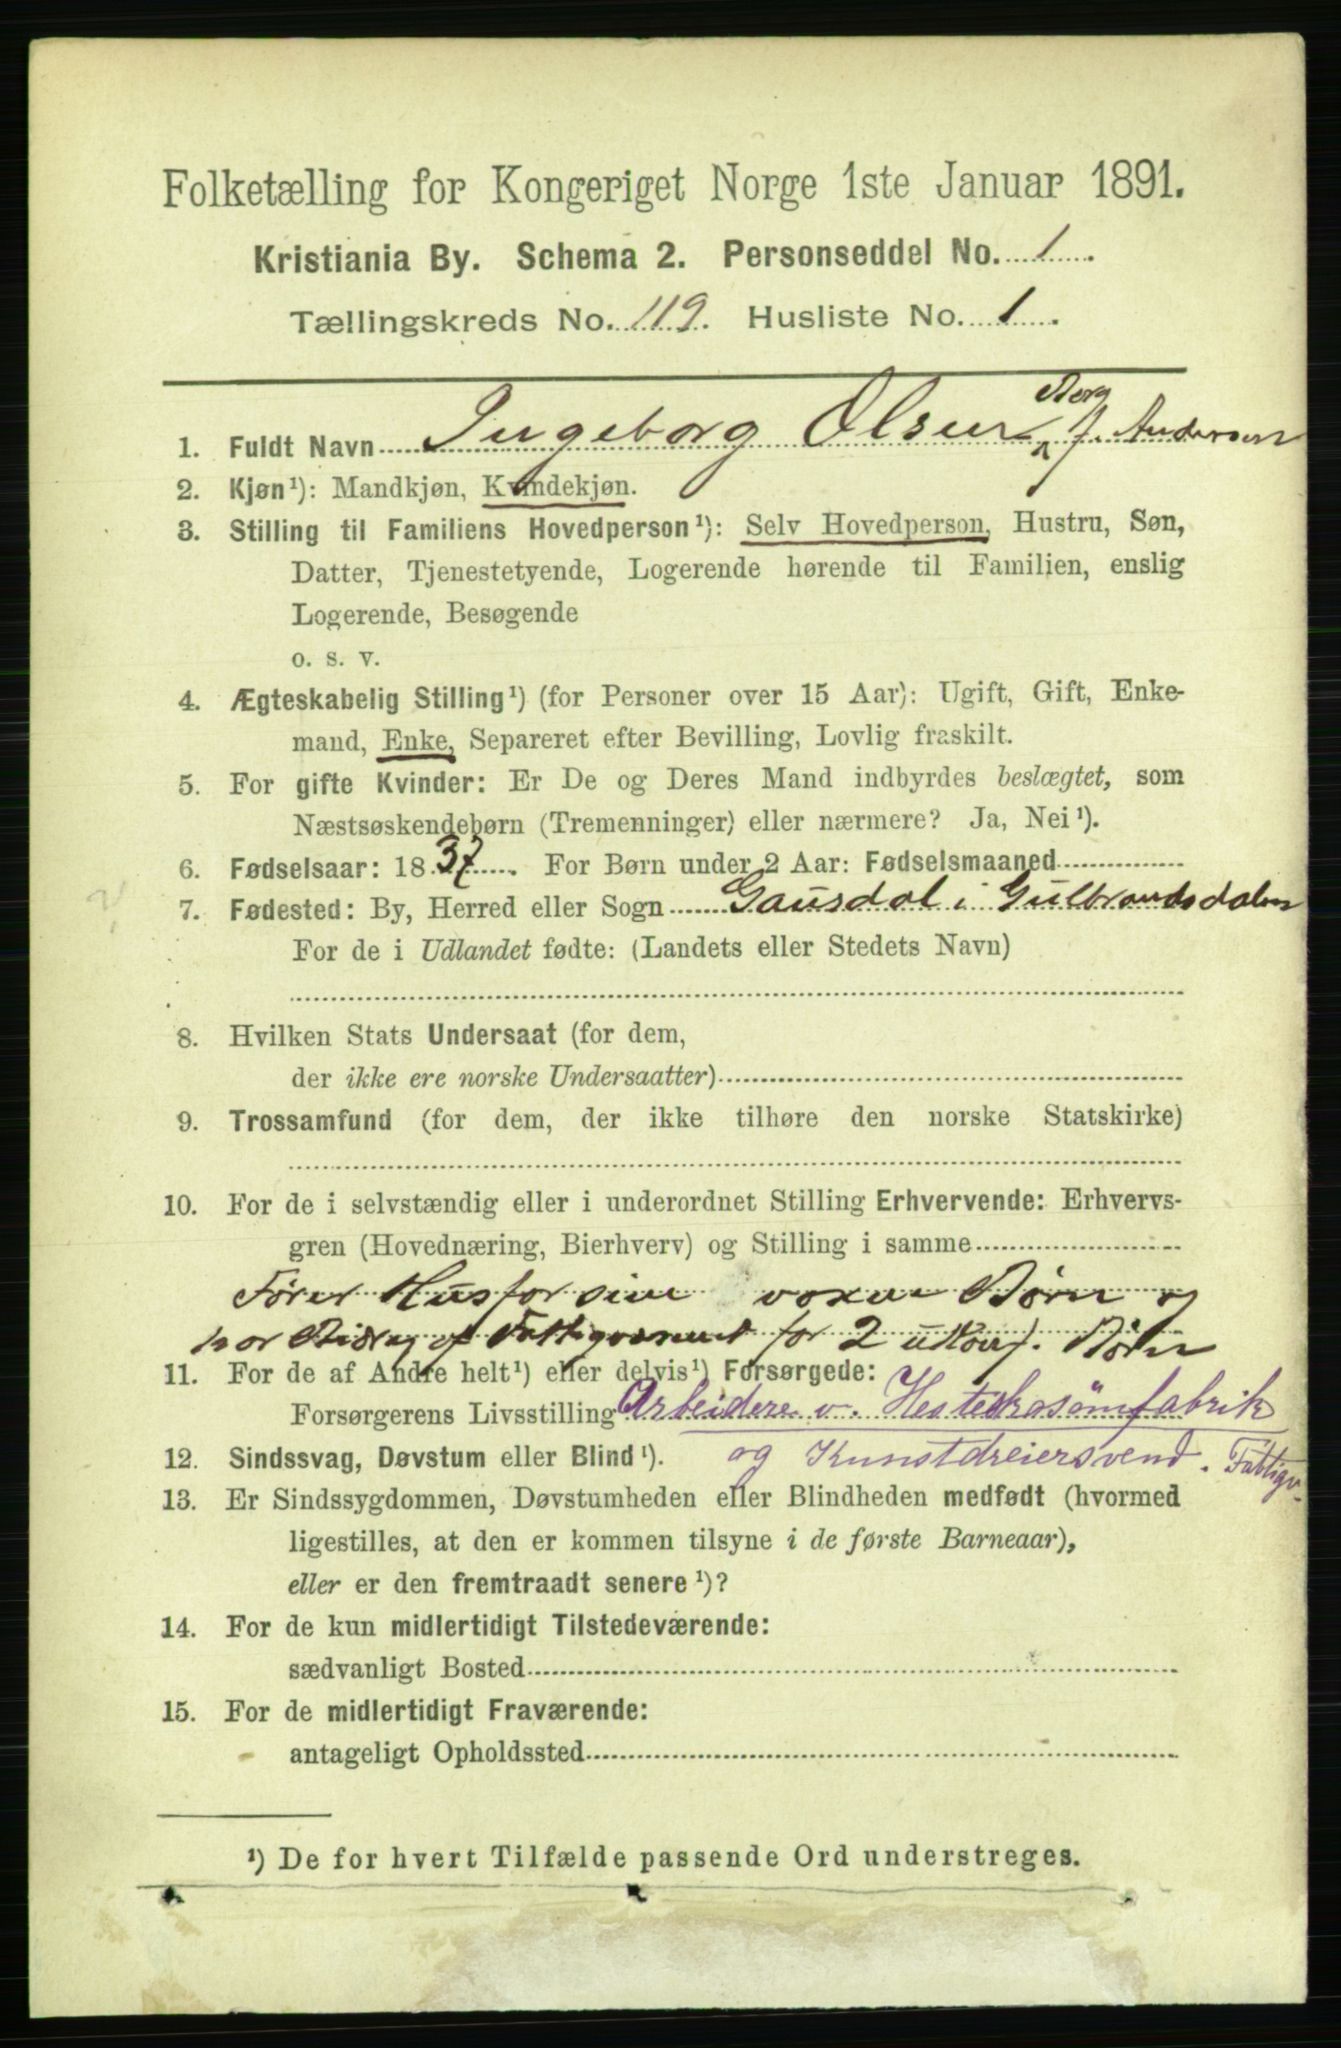 Folketælling for Kongeriget Norge 1ste Januar 1891.
Kristiania By. Schema 2. Personseddel No. 1.
Tællingskreds No. 119. Husliste No. 1.
Berg
1. Fuldt Navn Ingeborg Olsen f. Andersen
2. Kjøn¹): Mandkjøn, Kvindekjøn.
3. Stilling til Familiens Hovedperson¹): Selv Hovedperson, Hustru, Søn,
Datter, Tjenestetyende, Logerende hørende til Familien, enslig
Logerende, Besøgende
o. s. v.
4. Ægteskabelig Stilling¹) (for Personer over 15 Aar): Ugift, Gift, Enke-
mand, Enke, Separeret efter Bevilling, Lovlig fraskilt.
5. For gifte Kvinder: Er De og Deres Mand indbyrdes beslægtet, som
Næstsøskendebørn (Tremenninger) eller nærmere? Ja, Nei¹).
6. Fødselsaar: 1837. For Børn under 2 Aar: Fødselsmaaned
7. Fødested: By, Herred eller Sogn Gausdal i Gulbrandsdalen
For de i Udlandet fødte: (Landets eller Stedets Navn)
8. Hvilken Stats Undersaat (for dem,
der ikke ere norske Undersaatter)
9. Trossamfund (for dem, der ikke tilhøre den norske Statskirke)
10. For de i selvstændig eller i underordnet Stilling Erhvervende: Erhvervs-
gren (Hovednæring, Bierhverv) og Stilling i samme
Fører Hus for sine voxne Børn og
har Bidrag af Fattigvæsenet for 2 ukonf. Børn
11. For de af Andre helt¹) eller delvis¹) Forsørgede:
Forsørgerens Livsstilling Arbeidere v. Hesteskosömfabrik
og Kunstdreiersvend. Fattigv.
12. Sindssvag, Døvstum eller Blind¹).
13. Er Sindssygdommen, Døvstumheden eller Blindheden medfødt (hvormed
ligestilles, at den er kommen tilsyne i de første Barneaar),
eller er den fremtraadt senere¹)?
14. For de kun midlertidigt Tilstedeværende:
sædvanligt Bosted
15. For de midlertidigt Fraværende:
antageligt Opholdssted
¹) De for hvert Tilfælde passende Ord understreges.